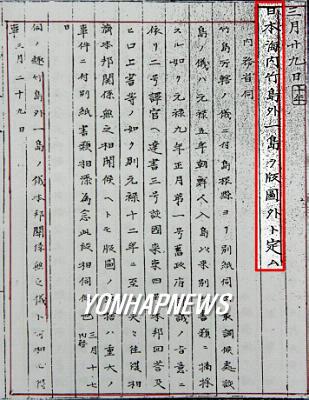 三月廿九日 十年
日本海内竹島外一島ヲ版圖外ト定ム
内務省伺
竹島所轄ノ儀ニ付島根縣ヨリ別紙伺出取調候處該
島ノ儀ハ元祿五年朝鮮人入島以來別紙書類ニ摘採
スル如ク元祿九年正月第一號舊政府ノ評議ノ旨意ニ
依リ二號譯官ヘ達書三號該國來柬四號本邦回答及
ヒ口上書等ノ如ク則元祿十二年ニ至リ夫々往復相
濟本邦關係無之相聞候ヘトモ版圖ノ取捨ハ重大ノ
事件ニ付別紙書類相添爲念此段相伺候也 三月十七日 内務
伺ノ趣竹島外一島ノ儀本邦關係無之儀ト可相心得
事 三月二十九日
YONHAPNEWS